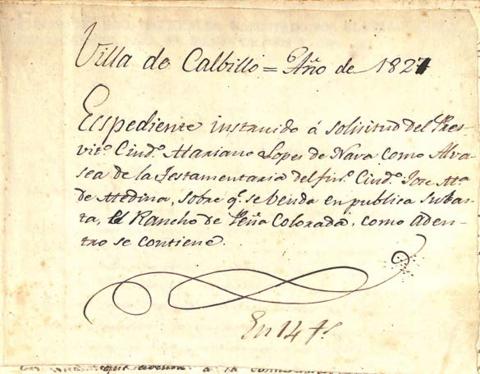 Villa de Calbillo = Año de 1827
Espediente instruido á solisitud del Pres-
vit.º Ciud.º Mariano Lopes de Nava como Alva-
sea de la Testamentaria del fin.º Ciud.º Jose M.ª
de Medina, sobre q.e se benda en publica Subas-
ta, el Rancho de Peña Colorada, como aden-
tro se contiene.
En 14 f.s